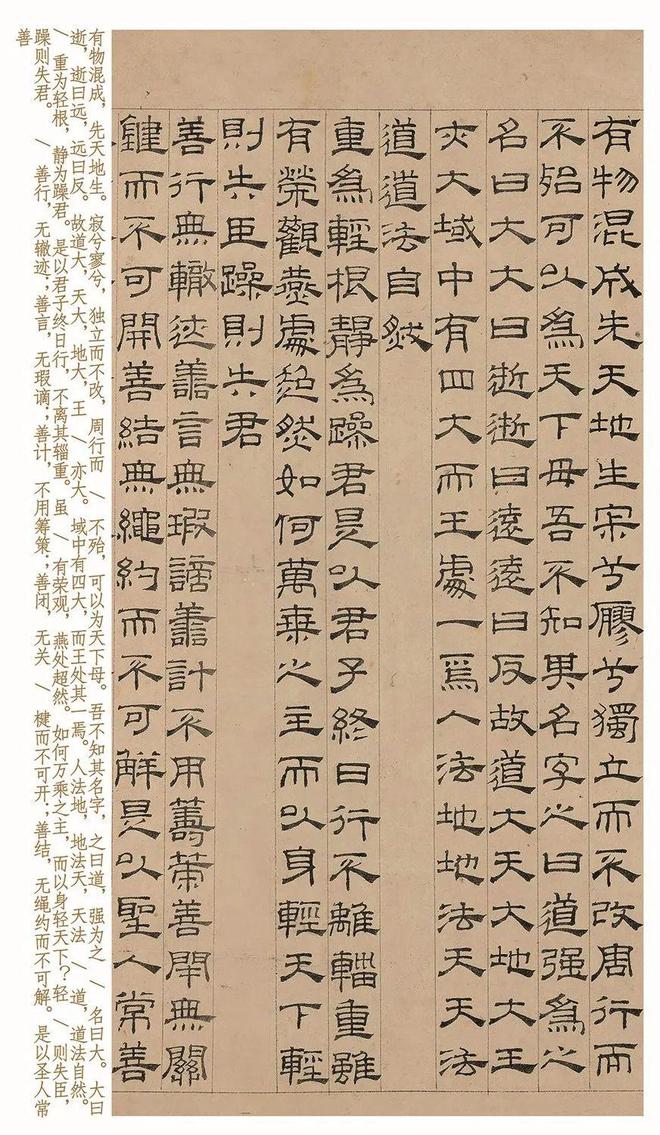 有物混成先天地生宗兮廫兮獨立而不改周行而
不殆可以為天下母吾不知其名字之曰道强為之
名曰大大曰逝逝曰遠遠曰反故道大天大地大王
亦大域中有四大而王處一焉人法地地法天天法
道道法自然
重為輕根靜為躁君是以君子終日行不離輜重雖
有榮觀燕處超然如何萬乘之主而以身輕天下輕
則失臣躁則失君
善行無轍迹善言無瑕謫善計不用籌策善閉無關
鍵而不可開善結無繩約而不可解是以聖人常善
有物混成，先天地生。寂兮寥兮，独立而不改，周行而 \ 不殆，可以为天下母。吾不知其名字，之曰道，强为之 \ 名曰大。大曰
逝，逝曰远，远曰反。故道大，天大，地大，王 \ 亦大。域中有四大，而王处其一焉。人法地，地法天，天法 \ 道，道法自然。
\ 重为轻根，静为躁君。是以君子终日行，不离其辎重。虽 \ 有荣观，燕处超然。如何万乘之主，而以身轻天下？轻 \ 则失臣，
躁则失君。 \ 善行，无辙迹；善言，无瑕谪；善计，不用筹策；善闭，无关 \ 楗而不可开；善结，无绳约而不可解。是以圣人常
善